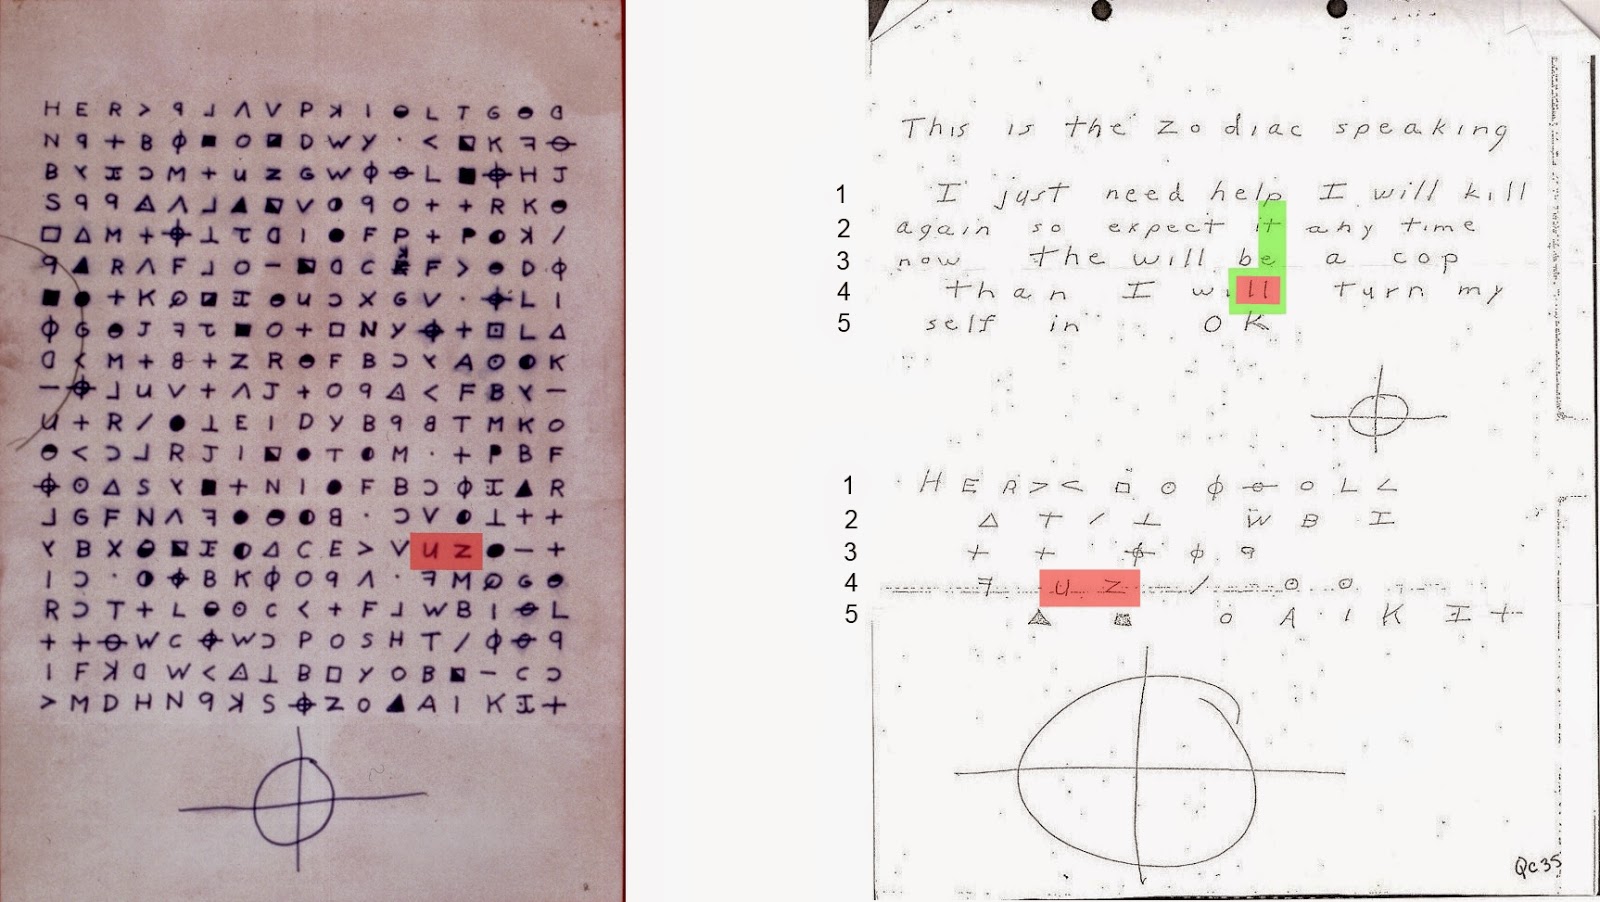 H E R > ꟼ ⅃ Λ V P ꓘ I ◒ L T G ◓ ᗡ
N ꟼ + B ɸ ■ O ◪ D W Y · < ◪ K ꟻ ⊖
B Y I Ɔ M + U Z G W ɸ ⊖ L ■ ⌖ H J
S ꟼ ꟼ △ Λ ⅃ ▲ ◪ V ◑ ꟼ O + + R K ◓
□ △ M + ⌖ ⊥ Ʇ ᗡ I ● F P + P ◐ ꓘ /
ꟼ ▲ R Λ F ⅃ O − ◪ ᗡ C F > ◓ D ɸ
■ ● + K ∅ ◪ I ◓ U Ɔ X G V · ⌖ L I
ɸ G ◓ J ꟻ Ʇ ■ O + □ N Y ⌖ + ⊡ L △
ᗡ < M + 8 + Z R ◓ F B Ɔ Y A ⊙ ◐ K
− ⌖ ⅃ U V + Λ J + O ꟼ △ < F B Y −
U + R / ● ⊥ E I D Y B ꟼ 8 T M K O
◓ < Ɔ ⅃ R J I ◪ ● T ◐ M · + P B F
⌖ ⊙ △ S Y ■ + N I ● F B Ɔ ɸ I ▲ R
⅃ G F N Λ ꟻ ● ◓ ◐ 8 · Ɔ V ◐ ⊥ + +
Y B X ◒ ◪ I ◐ △ C E > V U Z ● − +
I Ɔ · ◑ ⌖ B K ɸ O ꟼ Λ · ꟻ M ∅ G ◓
R Ɔ T + L ◒ ⊙ C < + F ⅃ W B I ⊖ L
+ + ⊖ W C ⌖ W Ɔ P O S H T / ɸ ⊖ ꟼ
I F ꓘ ᗡ W < △ ⊥ B □ Y O B ◪ − C Ɔ
> M D H N ꟼ ꓘ S ⌖ Z O ▲ A I K I +
This is the zodiac speaking
1 I just need help I will kill
2 again so expect it any time
3 now the will be a cop
4 than I will turn my
5 self in OK
1 H E R > < □ ⊙ ɸ ⊖ O L <
2 △ T / ⊥ W B I
3 + + ⌖ ɸ ꟼ
4 ꟻ U Z / ⊙ ⊙
5 ▲ ◪ O A I K I +
Qc35